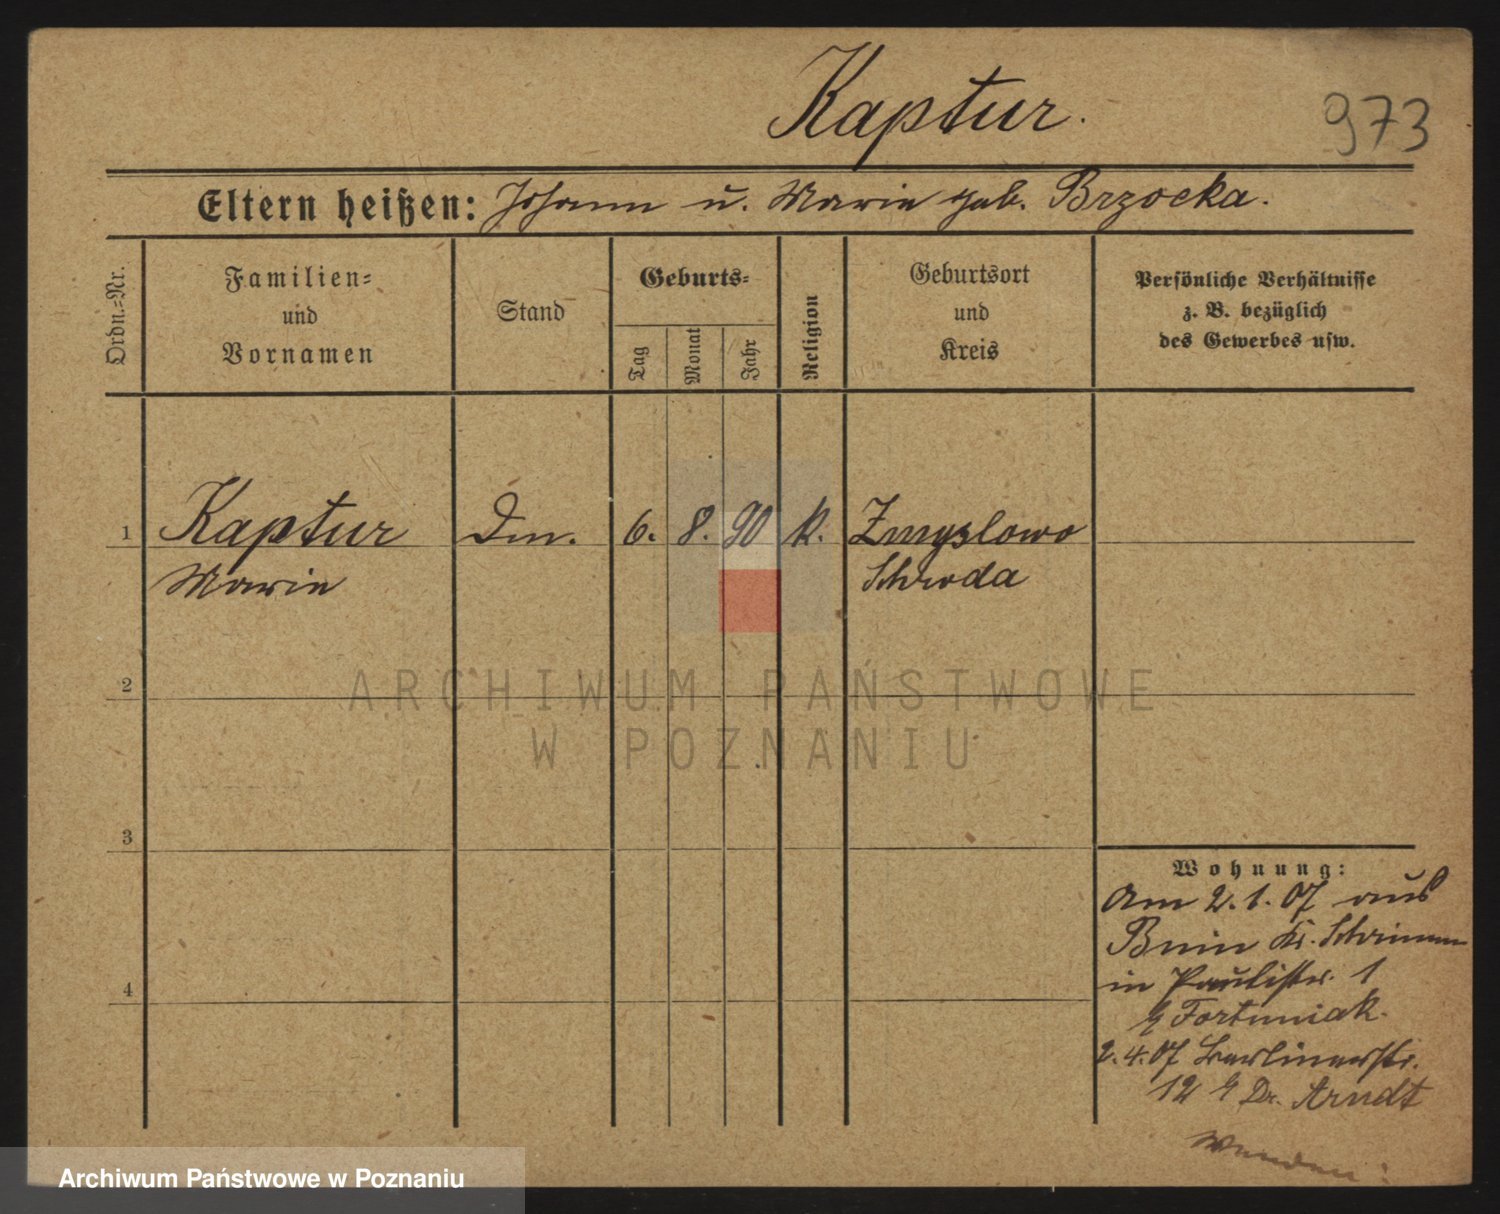 Kaptur.
973
Eltern heißen: Johann u. Marie geb. Brzocka.
Ordn.-Nr.
Familien-
und
Vornamen
Stand
Geburts-
Tag
Monat
Jahr
Religion
Geburtsort
und
Kreis
Persönliche Verhältnisse
z. B. bezüglich
des Gewerbes usw.
1 Kaptur Dm. 6. 8. 90 k. Zmyslowo
Marie Schroda
2
ARCHIWUM PAŃSTWOWE
W POZNANIU
3
4
Wohnung:
Am 2.1.07 aus
Bnin Kr. Schrimm
in Paulistr. 1
b Fortuniak.
2.4.07 Berlinerstr.
12 b Dr. Arndt
Wenden!
Archiwum Państwowe w Poznaniu